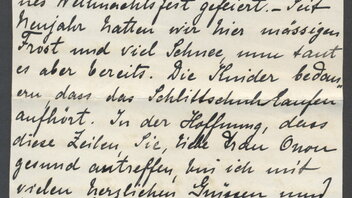 nes Weihnachtsfest gefeiert. – Seit
Neujahr hatten wir hier mässigen
Frost und viel Schnee, nun taut
es aber bereits. Die Kinder bedau-
ern, dass das Schlittschuhlaufen
aufhört. In der Hoffnung, dass
diese Zeilen, Sie, liebe Frau
gesund antreffen, bin ich mit
vielen herzlichen Grüssen und